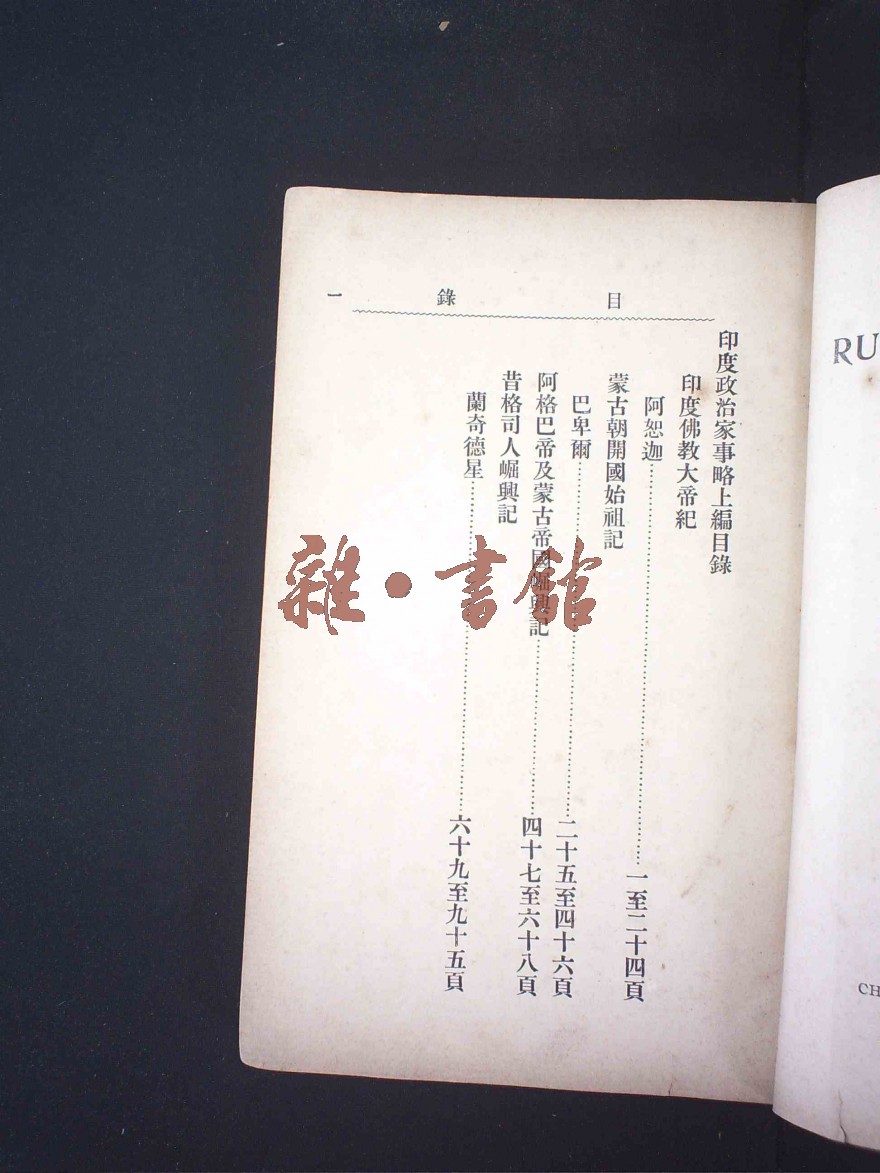 目錄 一
印度政治家事略上編目錄
印度佛教大帝紀
阿恕迦……一至二十四頁
蒙古朝開國始祖記
巴卑爾……二十五至四十六頁
阿格巴帝及蒙古帝國崛興記……四十七至六十八頁
昔格司人崛興記
蘭奇德星……六十九至九十五頁
雜·書館
RU
CH